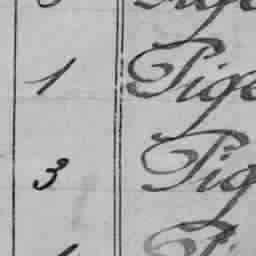 1 Pige
3 Pig